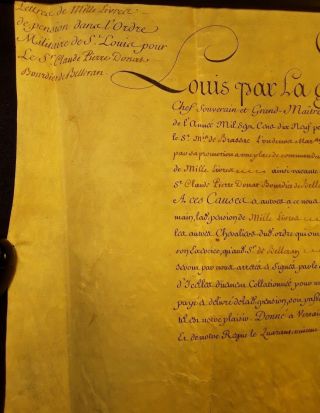 Lettres de Mille Livres
de pension dans l'Ordre
Militaire de St. Louis pour
Le Sr. Claude Pierre Donat
Bourdier de Belleran
Louis par La g
Chef Souverain et Grand-Maitre
de l'Année Mil Sept Cens dix Neuf
le S. de Brassac
par sa promotion a une place de command
de Mille Livres ainsi vacante
Sr. Claude Pierre Donat Bourdier de Bell
A ces Causes a autres a ce nous
main, lad. pension de Mille Livres
les autres Chevaliers dud. ordre qui ont
son Exercice, quand. Sr. de Belleran
par nous arresté & Signée par le
d'Icelles duement Collationnée pour un
payé & délivré de lad. pension
tel est notre plaisir. Donné a Versail
Et de notre Regne le Quarante